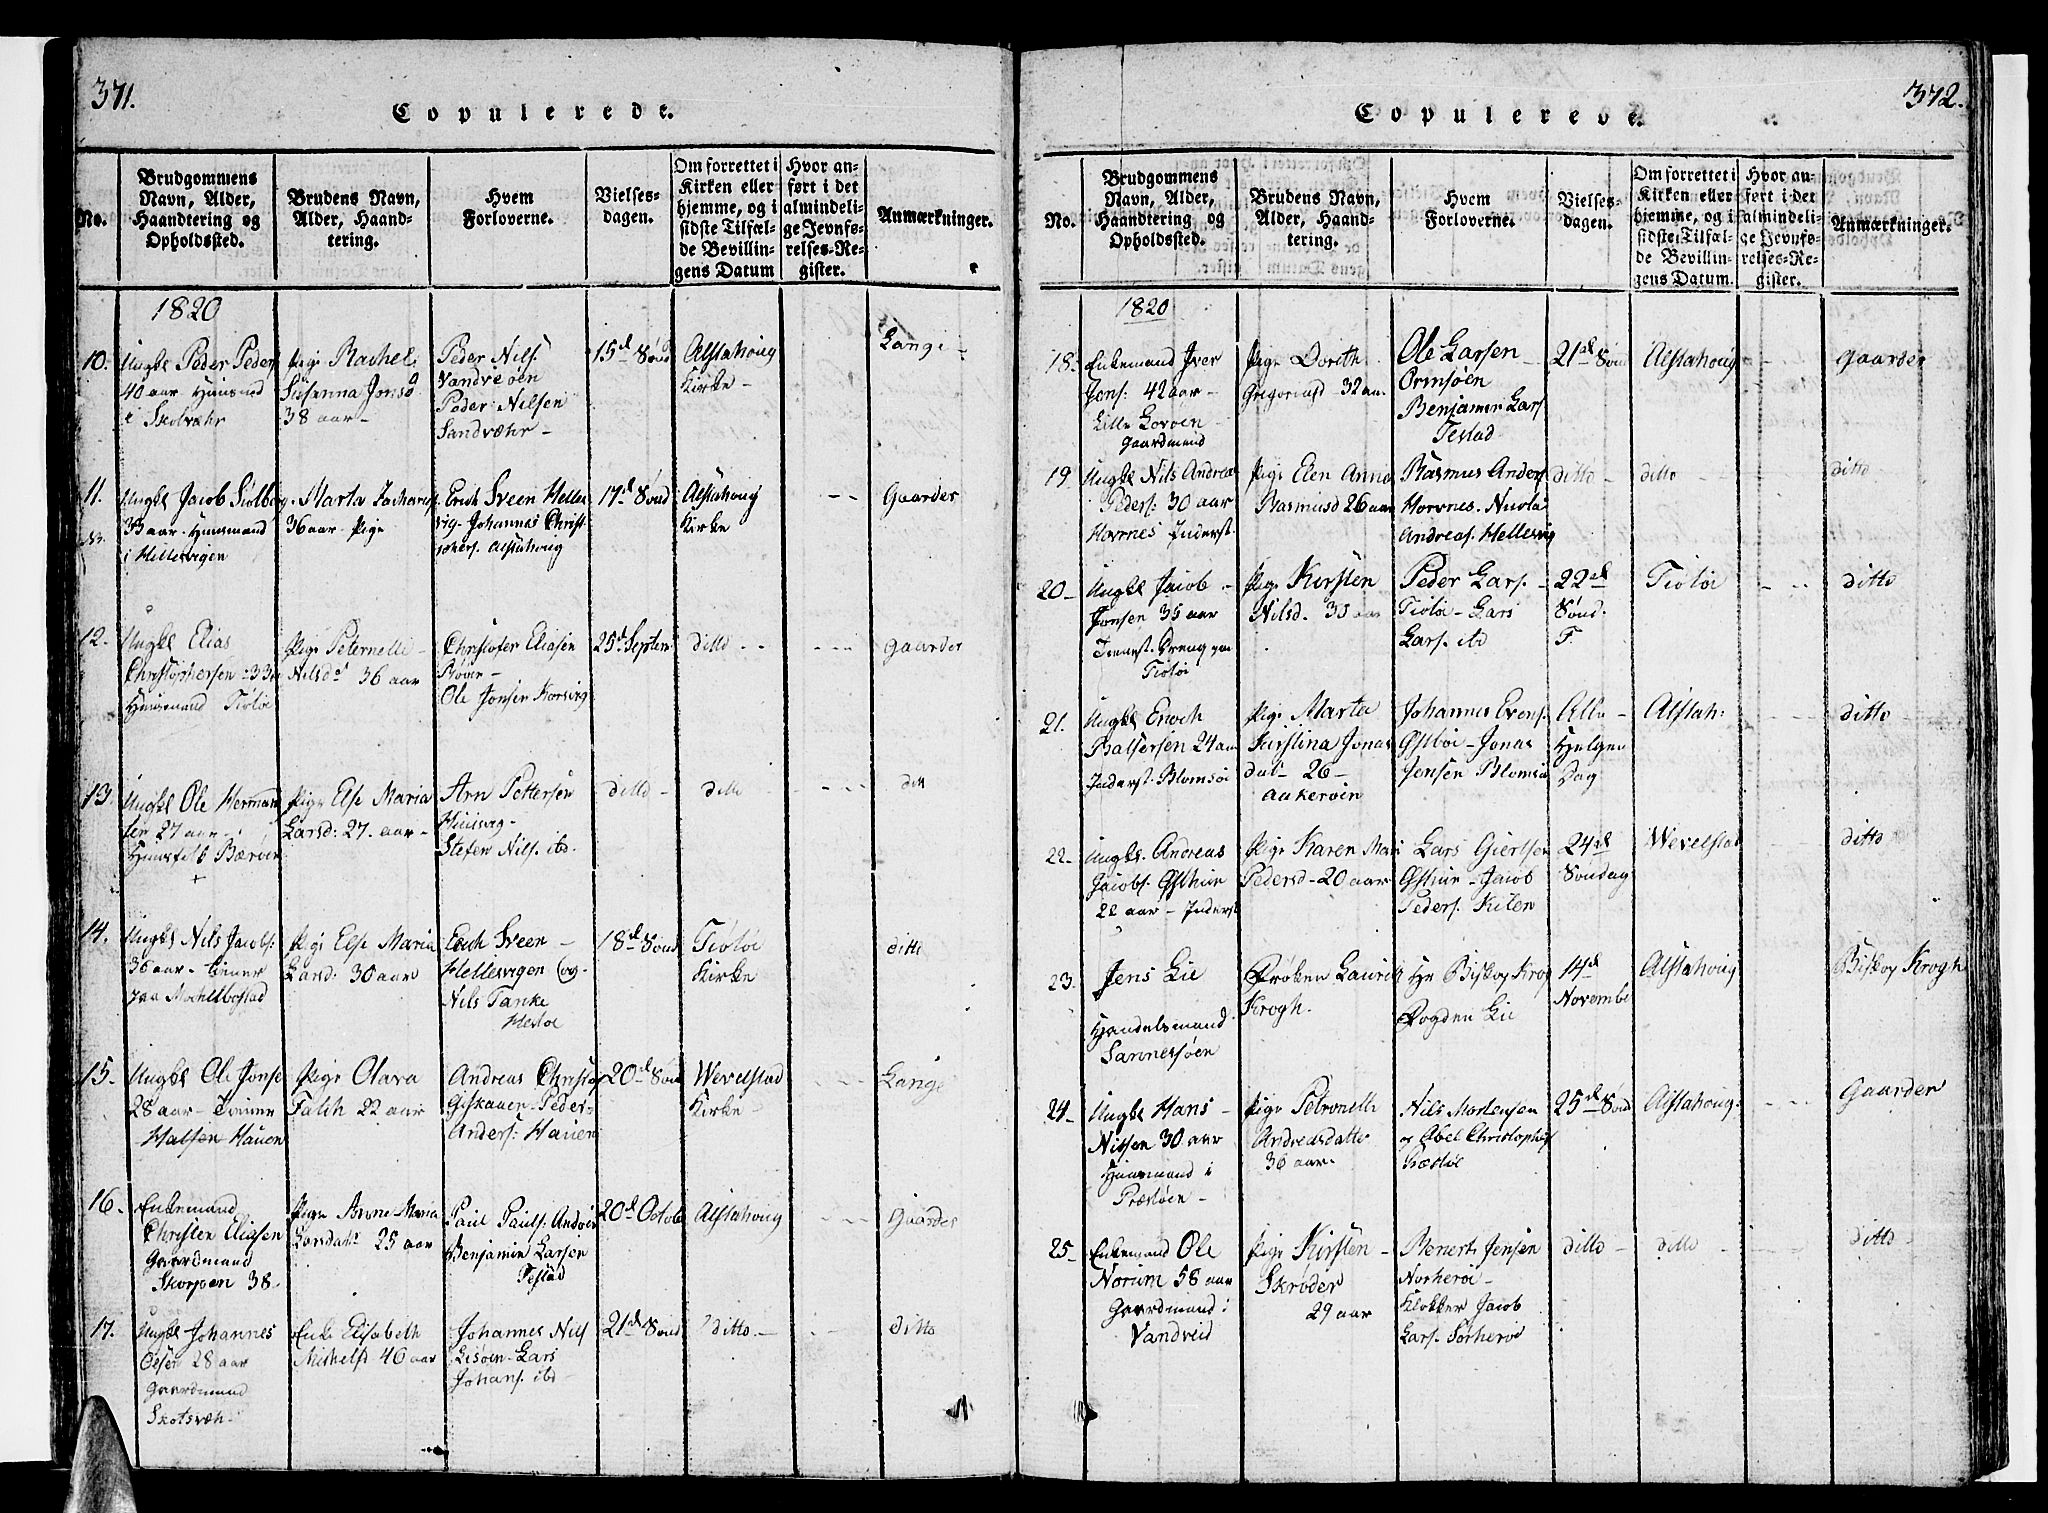 371.
Copulerede.
No.
Brudgommens Navn, Alder, Haandtering og Opholdssted.
Brudens Navn, Alder, Haandtering.
Hvem Forloverne.
Vielsesdagen.
Om forrettet i Kirken eller hjemme, og i sidste Tilfælde Bevillingens Datum
Hvor anført i det almindelige Jevnførelses-Register.
Anmærkninger.
1820
10. Ungkl Peder Peder
40 aar Huusmd
i Skotvæhr
Pige Rachel
Susanna Jonsd
38 aar
Peder Nils
Peder Nilsen
Sandvæhr
15de Sønd
Alstahoug
Kirke
Lange
11. Ungkl Jacob
33 aar Huusmand
i Hellesvigen
Marta Zacharis
36 aar Pige
Erich Sveen Helles
vig Johannes Christ
ophers. Alstahoug
17de Sønd
Alstahoug
Kirke
Gaarder
12. Ungkl Elias
Christophersen 33
Huusmand Tiötöe
Pige Peternelle
Nilsd 36 aar
Christofer Eliasen
Ole Jonsen
25de Septem
ditto
Gaarder
13. Ungkl Ole Herman
sen 27 aar
Pige Else Maria
Larsd: 27. aar
Arn Pettersen
Stefen Nils. ibd.
ditto
ditto
ditt
14. Ungkl Nils Jacobs:
36 aar
paa
Pige Else Maria
30 aar
Erich Sveen
Hellesvigen og
Nils Tanke
18de Sønd
Tiötöe
Kirke
ditto
15. Ungkl Ole Jonse
28 aar Tiener
Halsen Hauen
Pige Olava
Falch 22 aar
Andreas Christof
Peder
Anders: Hauen
20de Sønd
Wevelstad
Kirke
Lange
16. Enkemand
Christen Eliasen
Gaardmand
38
Pige Anne Maria
Larsdatr 25 aar
Paul Pauls:
Benjamin Larsen
Testad
20de Octob
Alstahoug
Gaarder
17. Ungkl Johannes
28 aar
Gaardmand
Skotsvæh
Enke Elisabeth
Michelsd 46 aar
Johannes Nils
Lars
Johans. ibd
21de Sønd
ditto
ditto
372.
Copulerede.
No.
Brudgommens Navn, Alder, Haandtering og Opholdssted.
Brudens Navn, Alder, Haandtering.
Hvem Forloverne.
Vielsesdagen.
Om forrettet i Kirken eller hjemme, og i sidste Tilfælde Bevillingens Datum.
Hvor anført i det almindelige Jevnførelses-Register.
Anmærkninger.
1820
18. Enkemand Iver
Jens: 42 aar
Lille
Gaardmand
Pige Dorith
Gregoriusd 32 aar
Ole Larsen
Ormsöen
Benjamin Lars
Testad
21de Sønd
Alstahoug
Gaarder
19. Ungkl Nils Andreas
Peders: 30 aar
Inderst.
Pige Elen Anna
Rasmusd 26 aar
Rasmus Anders
Andreas. Hellesvig
ditto
ditto
ditto
20. Ungkl Jacob
Jonsen 35 aar
Tiötöi
Pige Kirsten
Nilsd.
Peder Lars.
Tiötöi Lars
Lars. ibd
22de
Sønd.
Tiötöi
ditto
21. Ungkl Enoch
Balsersen 24 aar
Inderst. Blomsöi
Pige Marta
Kirstina Jonas
dat 26
Johannes Evens.
Jonas
Jensen Blomsöi
Alle
Helgen
Dag
Alstah:
ditto
22. Ungkl. Andreas
Jacobs.
22 aar Inderst
Pige Karen Mari
Pedersd 20 aar
Lars Giertsen
Jacob
Peders.
24de
Søndag
Wevelstad
ditto
23. Jens Lie
Handelsmand
Sannesöen
Frøken Lauri
Krogh.
Hr Biskop Krog
Fogden Lie
14de
Novembe
Alstahoug
Biskop Krogh
24. Ungkl Hans
Nilsen 30 aar
Huusmand i
Præstöen
Pige Petronelle
Andreasdatter
36 aar.
Nils Mortensen
og Abel Christophers
25de Sønd
Alstahoug:
Gaarder
25. Enkemand Ole
Norum 58 aar
Gaardmand i
Vandveid
Pige Kirsten
Skrøder
29 aar
Benert Jensen
Norherøi
Klokker Jacob
Lars. Sørherøi
ditto
ditto
ditto